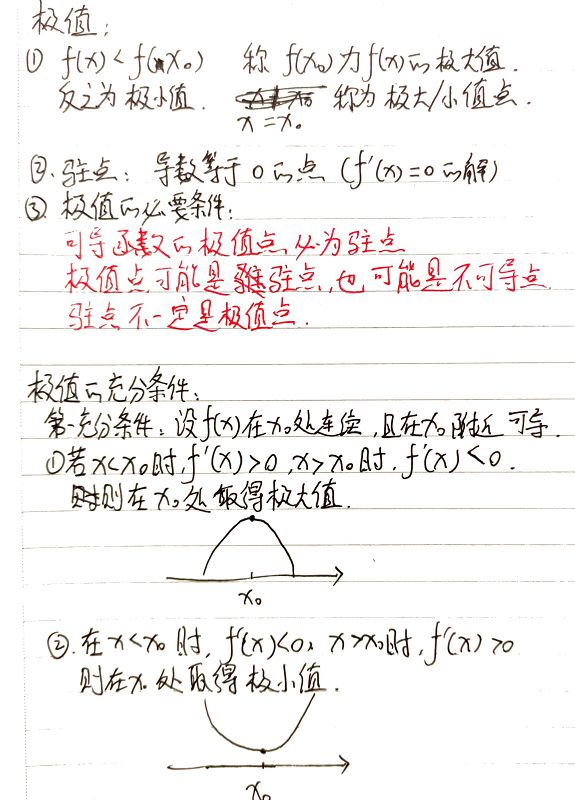 极值：
① f(x) < f(x₀) 称 f(x₀)为f(x)的极大值.
反之为极小值. x = x₀ 称为极大/小值点.
②. 驻点：导数等于0的点 (f'(x)=0的解)
③. 极值的必要条件：
可导函数的极值点必为驻点
极值点可能是驻点，也可能是不可导点
驻点不一定是极值点.
极值的充分条件：
第一充分条件：设f(x)在x₀处连续，且在x₀附近可导.
①若x<x₀时, f'(x)>0, x>x₀时, f'(x)<0.
则在x₀处取得极大值.
x₀
②. 在x<x₀时, f'(x)<0, x>x₀时, f'(x)>0
则在x₀处取得极小值.
x₀